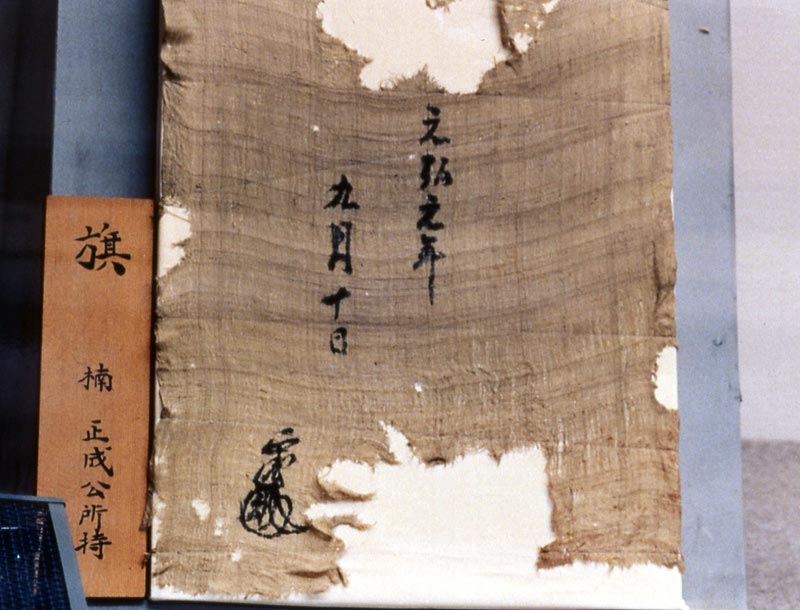 元弘元年
九月十日
旗
楠 正成公所持